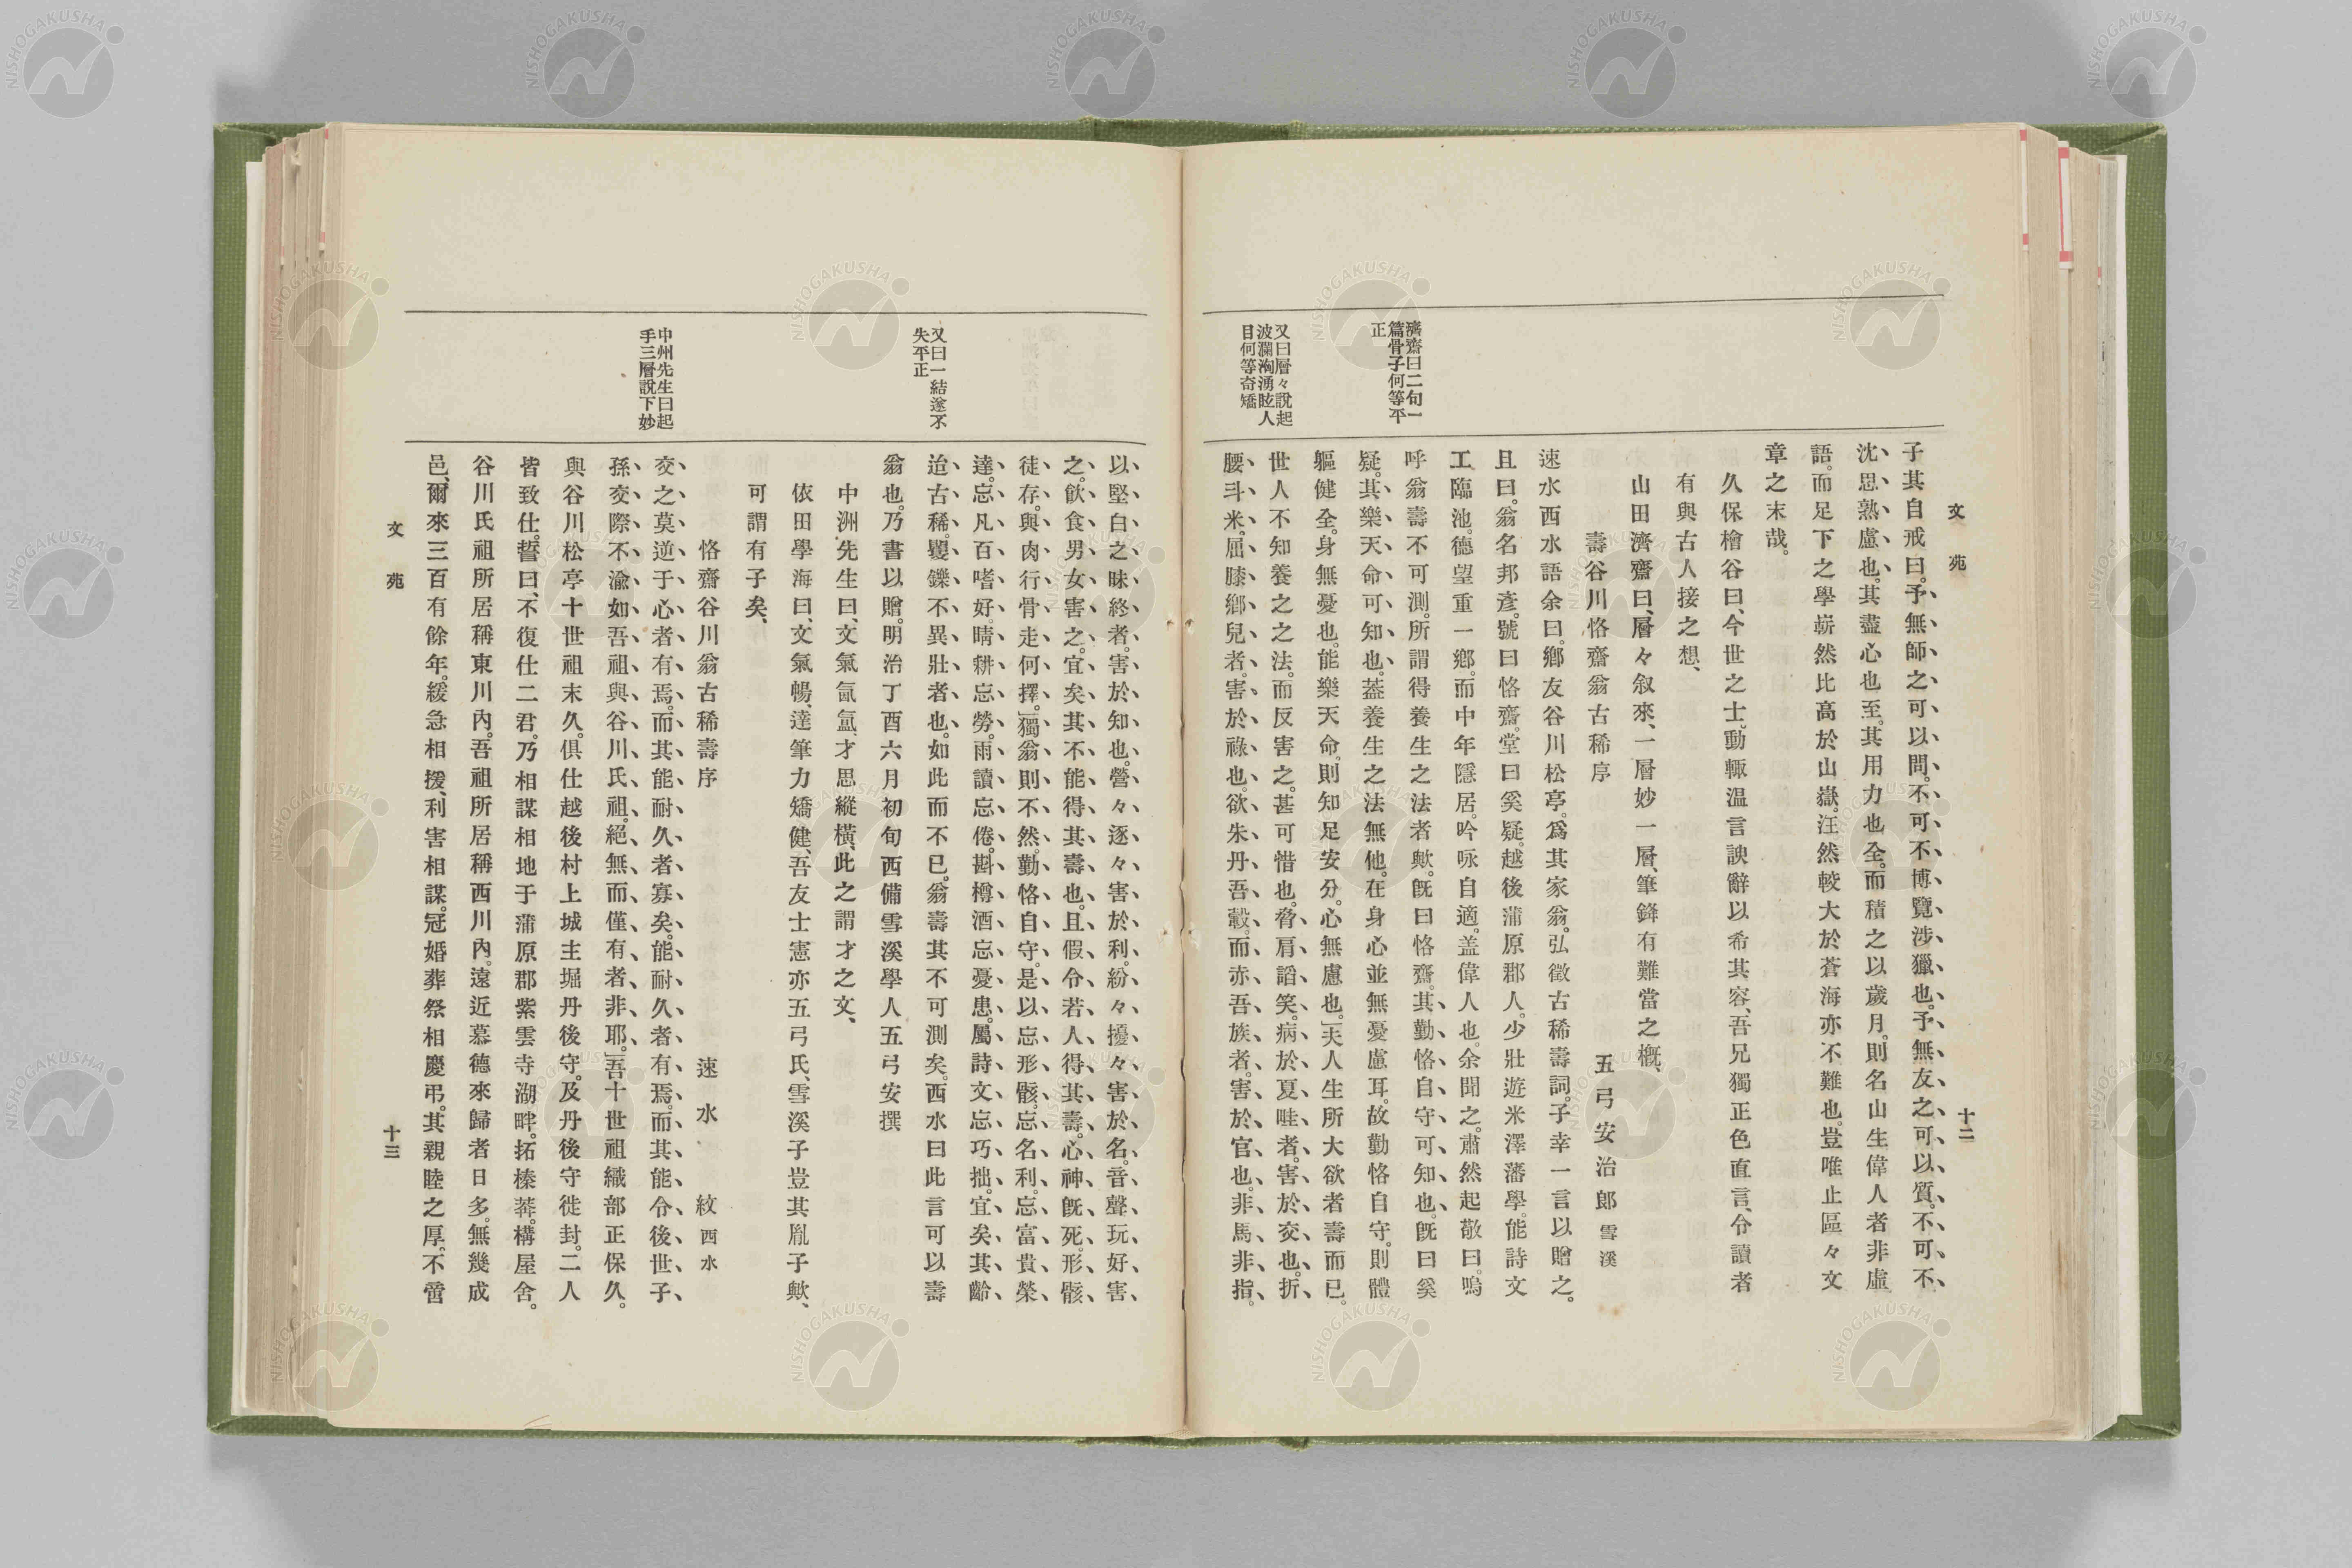 文苑
十二
濟齋曰二句一
篇骨子何等平
正
又曰層々說起
波瀾洶湧眩人
目何等奇矯
子其自戒曰。予無師之可以問。不可不博覽涉獵也。予無友之可以質。不可不
沈思熟慮也。其盡心也至。其用力也全。而積之以歲月。則名山生偉人者非虛
語。而足下之學嶄然比高於山嶽。汪然較大於蒼海亦不難也。豈唯止區々文
章之末哉。
久保檜谷曰、今世之士、動輒温言諛辭以希其容、吾兄獨正色直言、令讀者
有與古人接之想、
山田濟齋曰、層々叙來、一層妙一層、筆鋒有難當之槪、
壽谷川恪齋翁古稀序
五弓安治郎雪溪
速水西水語余曰。鄉友谷川松亭。爲其家翁。弘徵古稀壽詞。子幸一言以贈之。
且曰。翁名邦彥。號曰恪齋。堂曰奚疑。越後蒲原郡人。少壯遊米澤藩學。能詩文
工臨池。德望重一鄕。而中年隱居。吟咏自適。盖偉人也。余聞之。肅然起敬曰。嗚
呼翁壽不可測。所謂得養生之法者歟。旣曰恪齋。其勤恪自守可知也。旣曰奚
疑。其樂天命可知也。葢養生之法無他。在身心並無憂慮耳。故勤恪自守。則體
軀健全。身無憂也。能樂天命。則知足安分。心無慮也。夫人生所大欲者壽而已。
世人不知養之之法。而反害之。甚可惜也。脅肩諂笑。病於夏畦者。害於交也。折
腰斗米。屈膝鄕兒者。害於祿也。欲朱丹吾轂。而赤吾族者。害於官也。非馬非指。
又曰一結遂不
失平正
中州先生曰起
手三層說下妙
以堅白之昧終者。害於知也。營々逐々害於利。紛々擾々害於名。音聲玩好害
之。飮食男女害之。宜矣其不能得其壽也。且假令若人得其壽。心神旣死。形骸
徒存。與肉行骨走何擇。獨翁則不然。勤恪自守。是以忘形骸。忘名利。忘富貴榮
達。忘凡百嗜好。晴耕忘勞。雨讀忘倦。斟樽酒忘憂患。屬詩文忘巧拙。宜矣其齡
迨古稀。矍鑠不異壯者也。如此而不已。翁壽其不可測矣。西水曰此言可以壽
翁也。乃書以贈。明治丁酉六月初旬西備雪溪學人五弓安撰
中洲先生曰、文氣氤氳、才思縱橫、此之謂才之文、
依田學海曰、文氣暢達筆力矯健、吾友士憲亦五弓氏、雪溪子豈其胤子歟、
可謂有子矣、
恪齋谷川翁古稀壽序
速水紋西水
交之莫逆于心者有焉。而其能耐久者寡矣。能耐久者有焉。而其能令後世子
孫交際不渝如吾祖與谷川氏祖。絕無而僅有者非耶。吾十世祖織部正保久。
與谷川松亭十世祖末久。俱仕越後村上城主堀丹後守。及丹後守徙封。二人
皆致仕。誓曰、不復仕二君。乃相謀相地于蒲原郡紫雲寺湖畔。拓榛莽。構屋舍。
谷川氏祖所居稱東川內。吾祖所居稱西川內。遠近慕德來歸者日多。無幾成
邑、爾來三百有餘年。緩急相援、利害相謀。冠婚葬祭相慶弔。其親睦之厚。不啻
文苑
十三